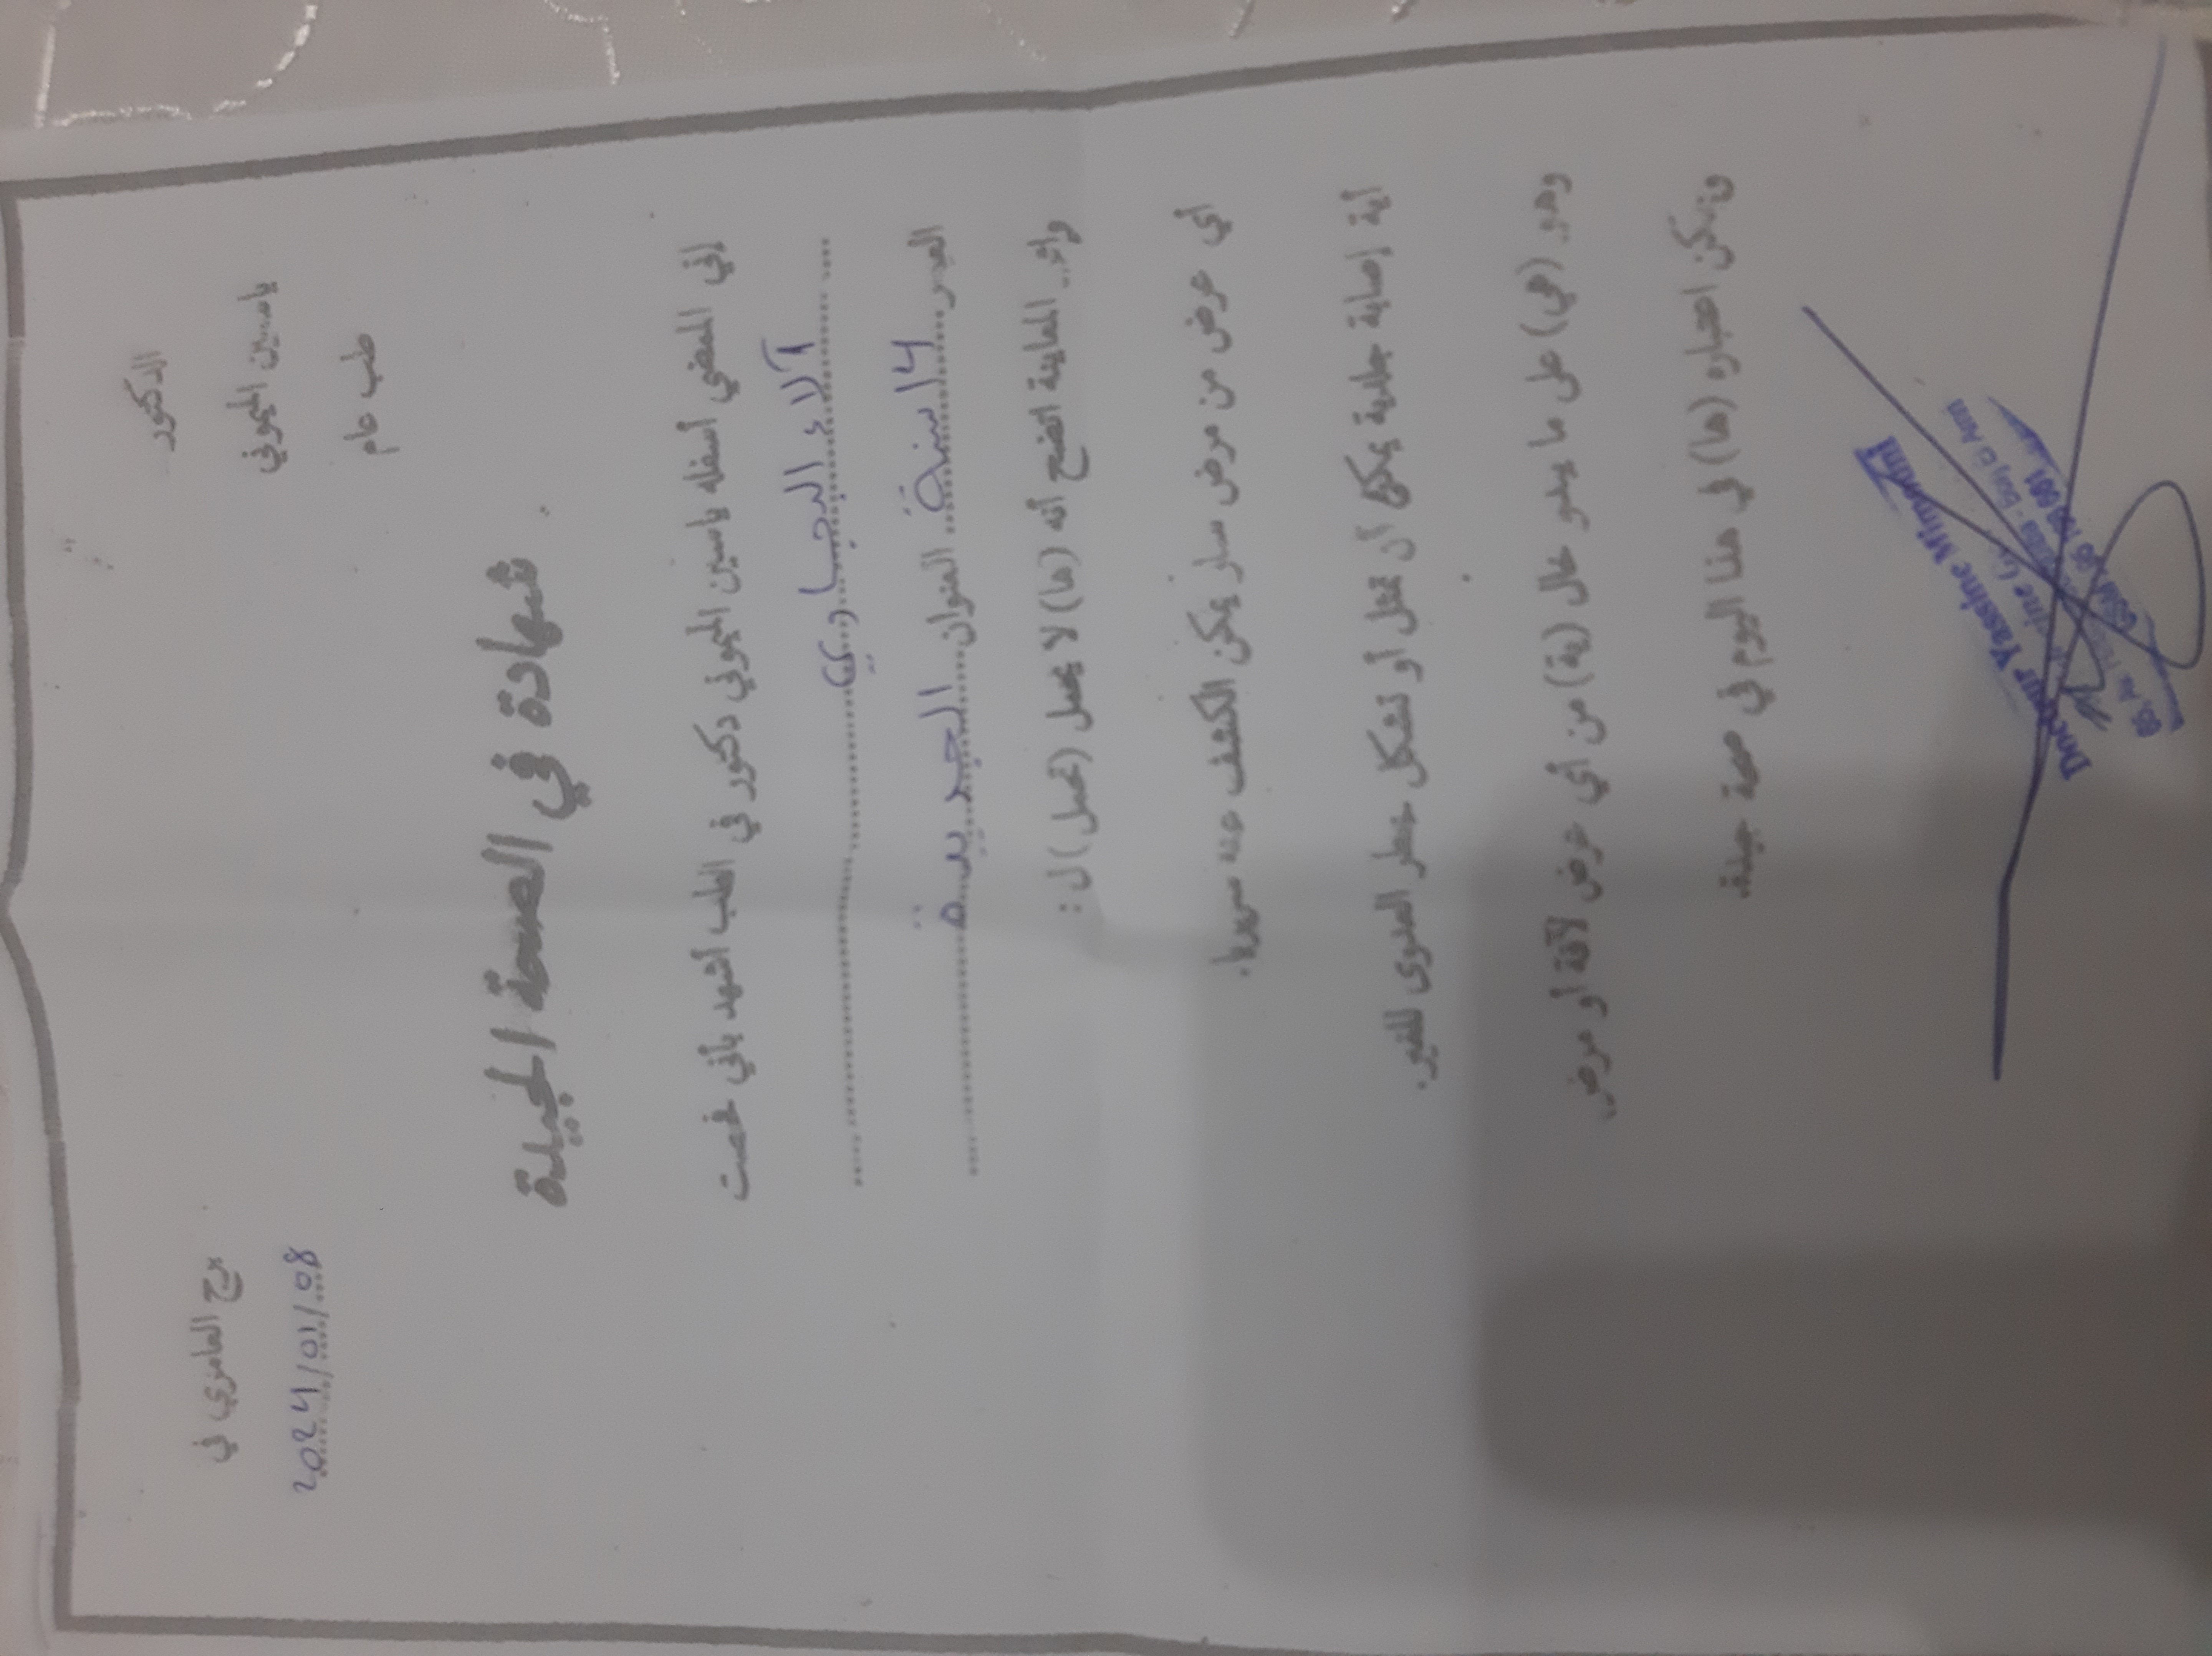 الدكتور
ياسين الميموني
طب عام
برج العامري في
2024/01/08
شهادة في الصحة الجيدة
إني الممضي أسفله ياسين الميموني دكتور في الطب أشهد بأني فحصت
آلاء الدجاوي
العمر العنوان الجديدة
وإثر المعاينة اتضح أنه (ها) لا يحمل (تحمل) ل :
أي عرض من مرض سار يمكن الكشف عنه سريريا.
أية إصابة جلدية يمكن أن تمثل أو تشكل خطر العدوى للغير.
وهو (هي) على ما يبدو خال (ية) من أي عرض لآفة أو مرض
ويمكن اعتباره (ها) في هذا اليوم في صحة جيدة.
Docteur Yassine Mimouni